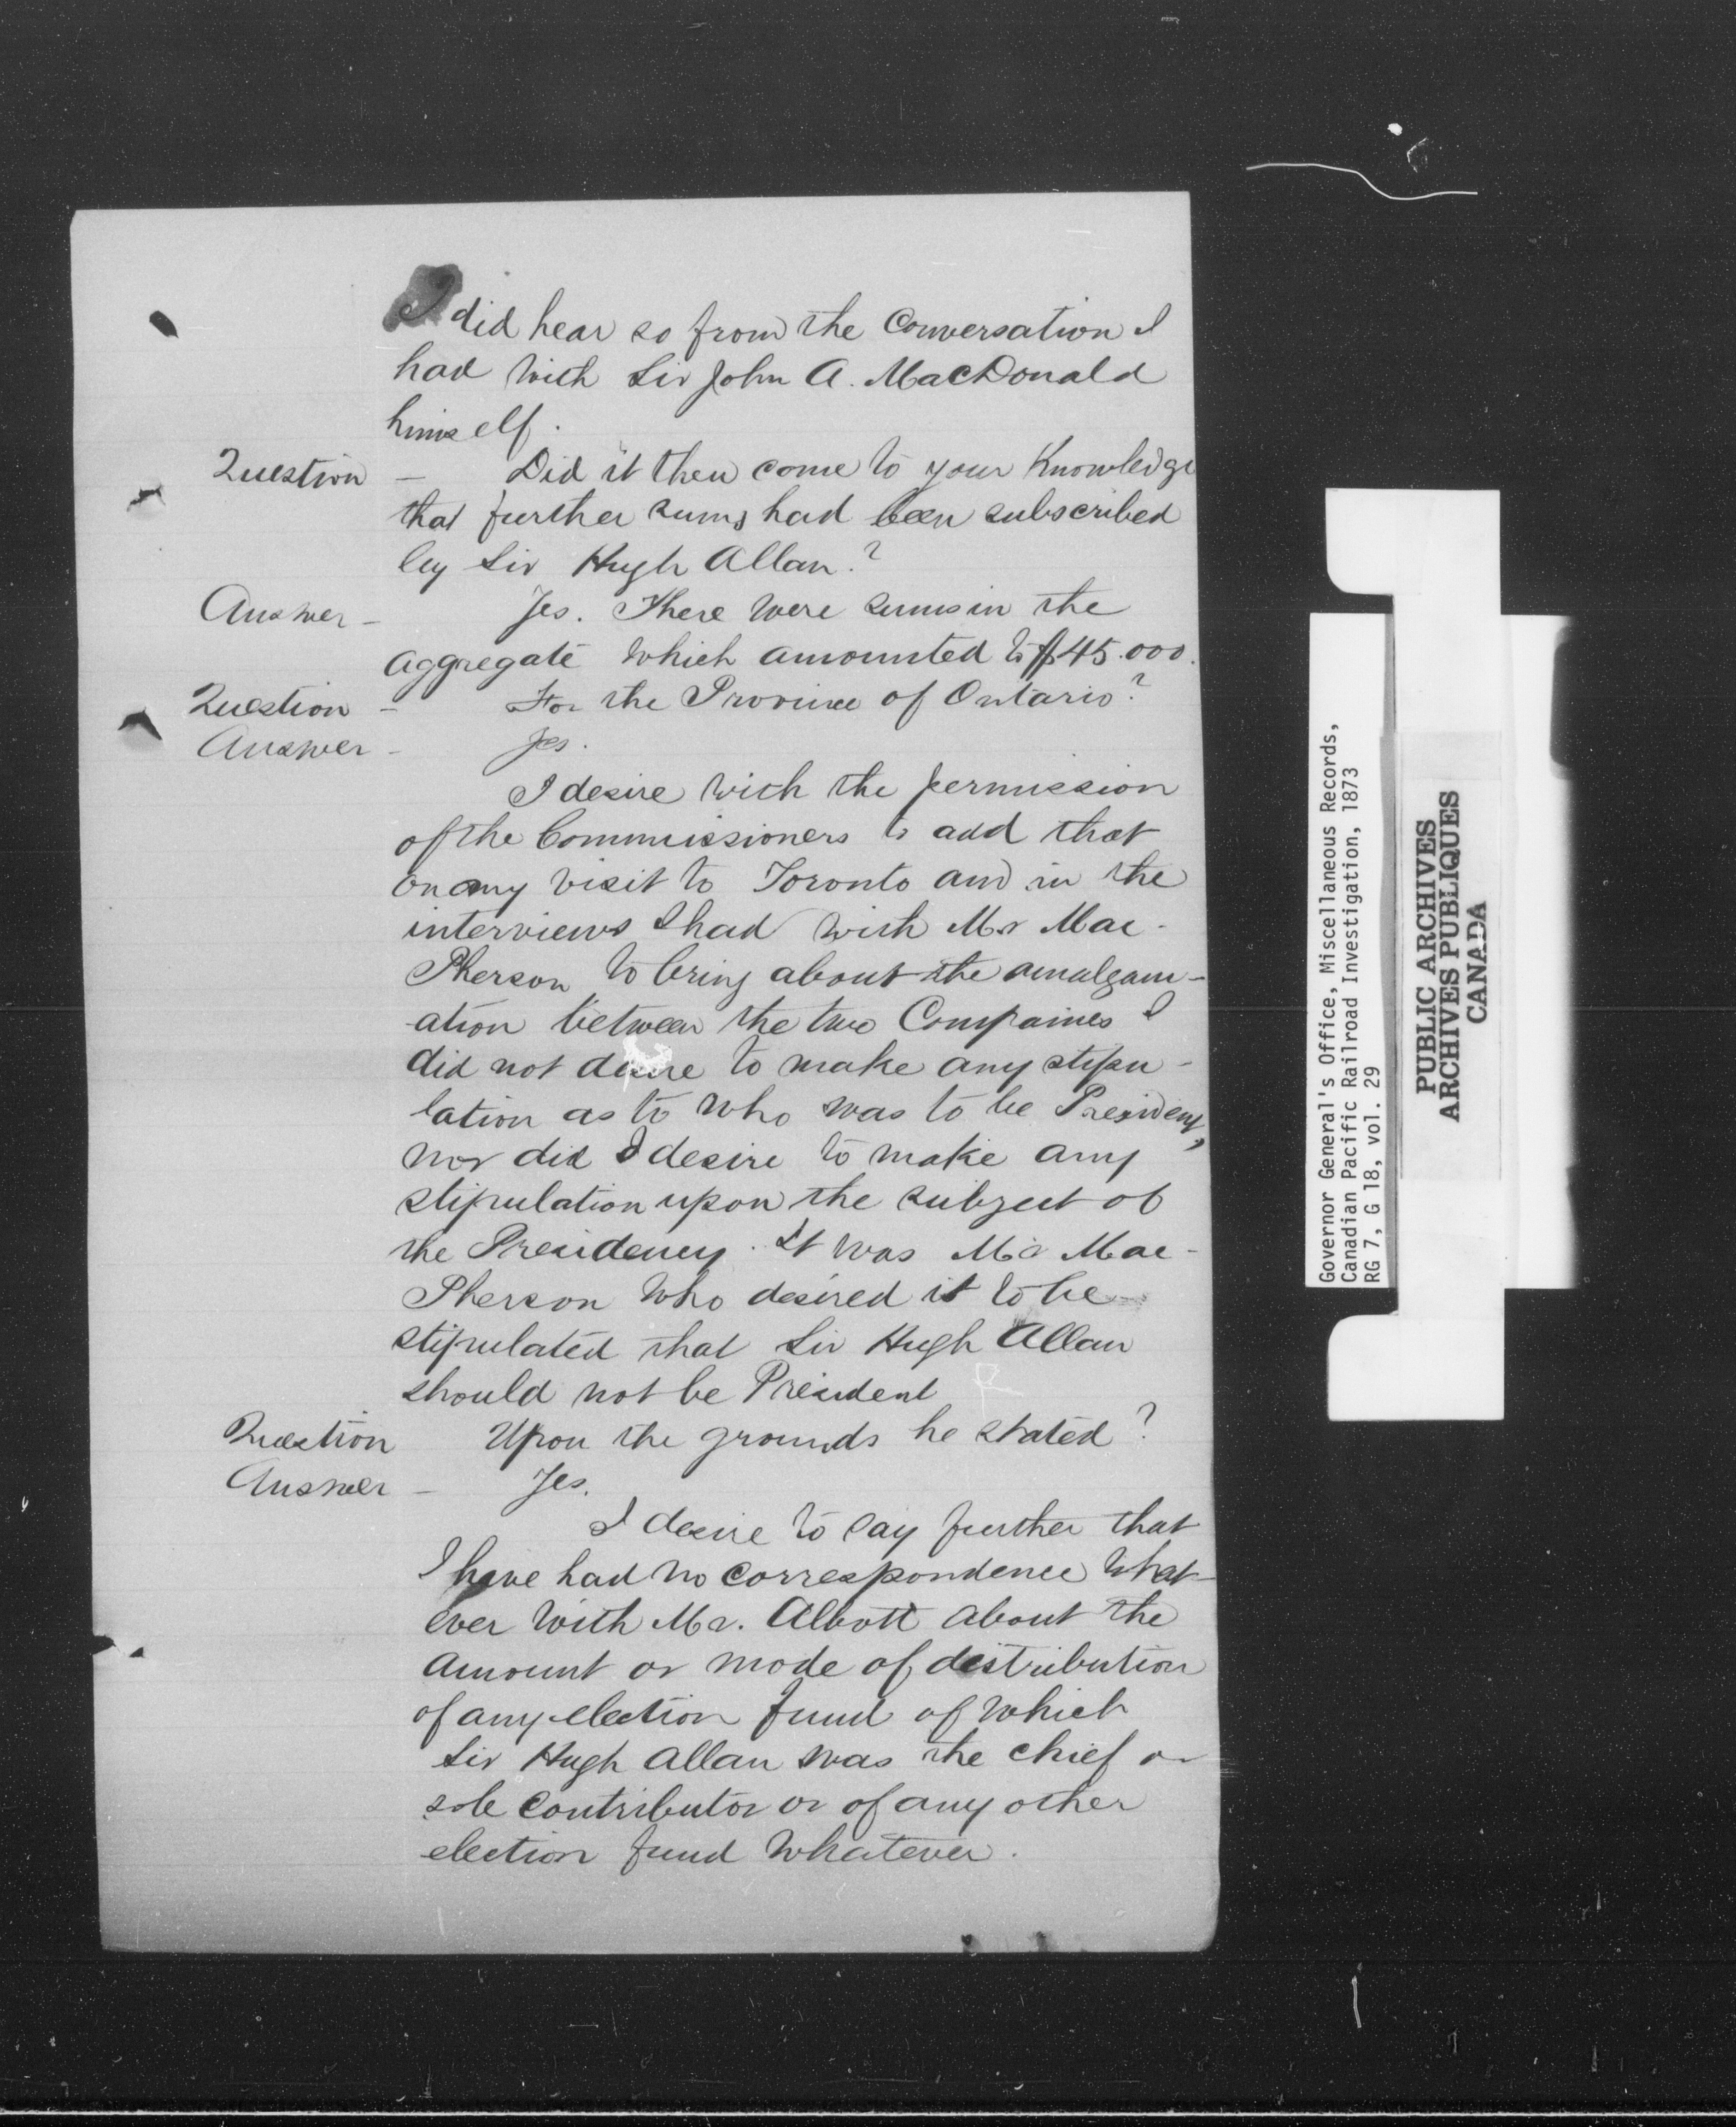 I did hear so from the Conversation I
had with Sir John A. MacDonald
himself.
Question – Did it then come to your Knowledge
that further sums had been subscribed
by Sir Hugh Allan?
Answer – Yes. There were sums in the
aggregate which amounted to $45.000.
Question – For the Province of Ontario?
Answer – Yes.
I desire with the permission
of the Commissioners to add that
on my visit to Toronto and in the
interviews I had with Mr Mac-
Pherson to bring about the amalgam-
ation between the two Compaines I
did not desire to make any stipu-
lation as to who was to be President,
nor did I desire to make any
stipulation upon the subject of
the Presidency. It was Mr Mac-
Pherson who desired it to be
stipulated that Sir Hugh Allan
should not be President
Question Upon the grounds he stated?
Answer – Yes.
I desire to say further that
I have had no correspondence what-
ever with Mr. Abbott about the
amount or mode of distribution
of any election fund of which
Sir Hugh Allan was the chief or
sole contributor or of any other
election fund whatever.
Governor General's Office, Miscellaneous Records,
Canadian Pacific Railroad Investigation, 1873
RG 7, G 18, vol. 29
PUBLIC ARCHIVES
ARCHIVES PUBLIQUES
CANADA